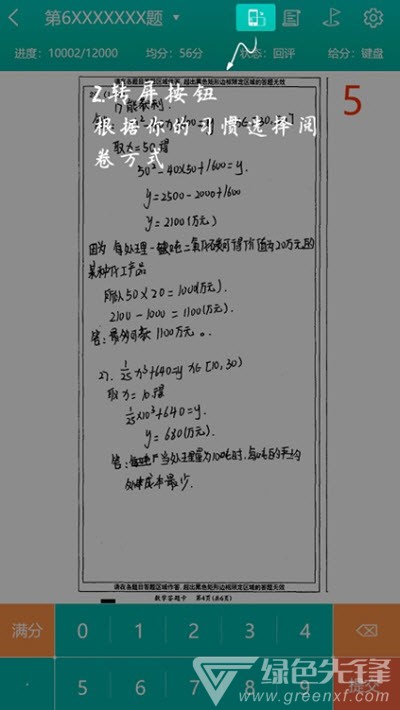 第6XXXXXXX题
进度：10002/12000 均分：56分 状态：回评 给分：键盘
请在各题目答题区域作答，超出黑色矩形边框限定区域的答案无效
2.转屏按钮
根据你的习惯选择阅
卷方式
5
取x=50得
50²-40×50+1600=y.
y=2500-2000+1600
y=2100(万元)
因为
某种化工产品
所以50×20=1000(万元).
2100-1000=1100(万元).
1100万元。
2). 1/25x³+640=y x∈[10,30)
取x=10得
1/25×10³+640=y.
y=680(万元).
答: 当处理量为100吨时,每吨的平均
处理成本最少.
请在各题目答题区域作答，超出黑色矩形边框限定区域的答案无效
数学答题卡 第4页(共6页)
满分 0 1 2 3 4
. 5 6 7 8 9 提交
绿色先锋
www.greenxf.com